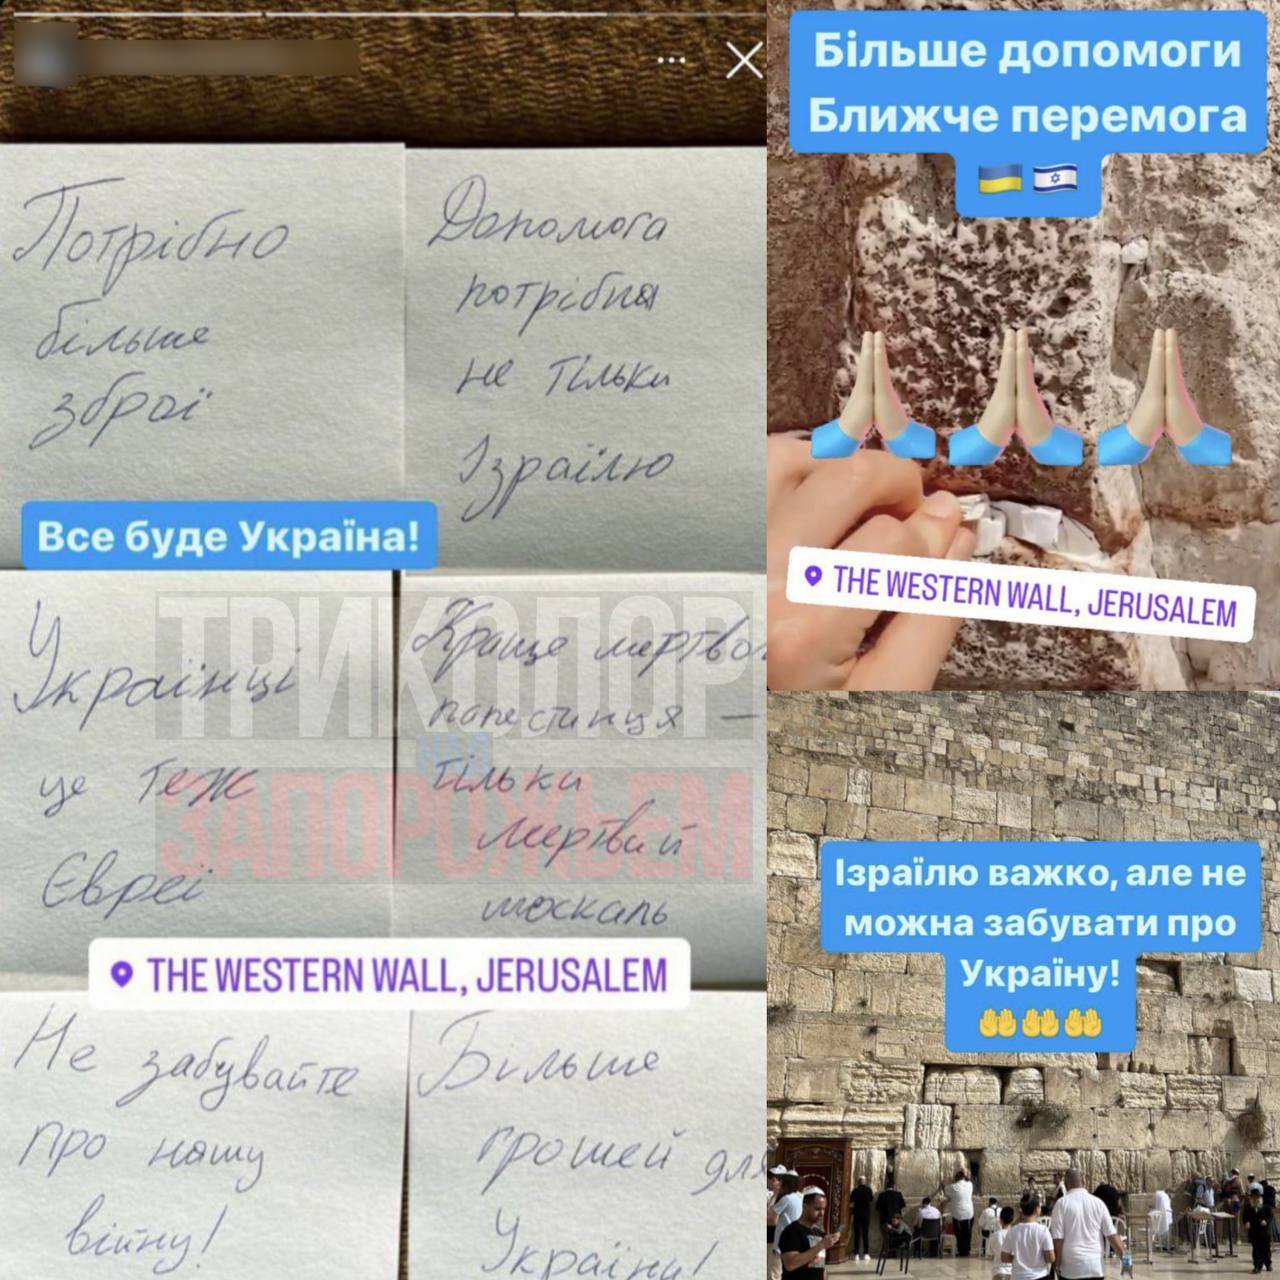 Потрібно
більше
зброї
Допомога
потрібна
не тільки
Ізраїлю
Все буде Україна!
Українці
це теж
Євреї
Краще мертвого
палестинця —
тільки
мертвий
москаль
ТРИКОЛОР
НАД
ЗАПОРОЖЬЕМ
THE WESTERN WALL, JERUSALEM
Не забувайте
про нашу
війну!
Більше
грошей для
України!
Більше допомоги
Ближче перемога
THE WESTERN WALL, JERUSALEM
Ізраїлю важко, але не
можна забувати про
Україну!